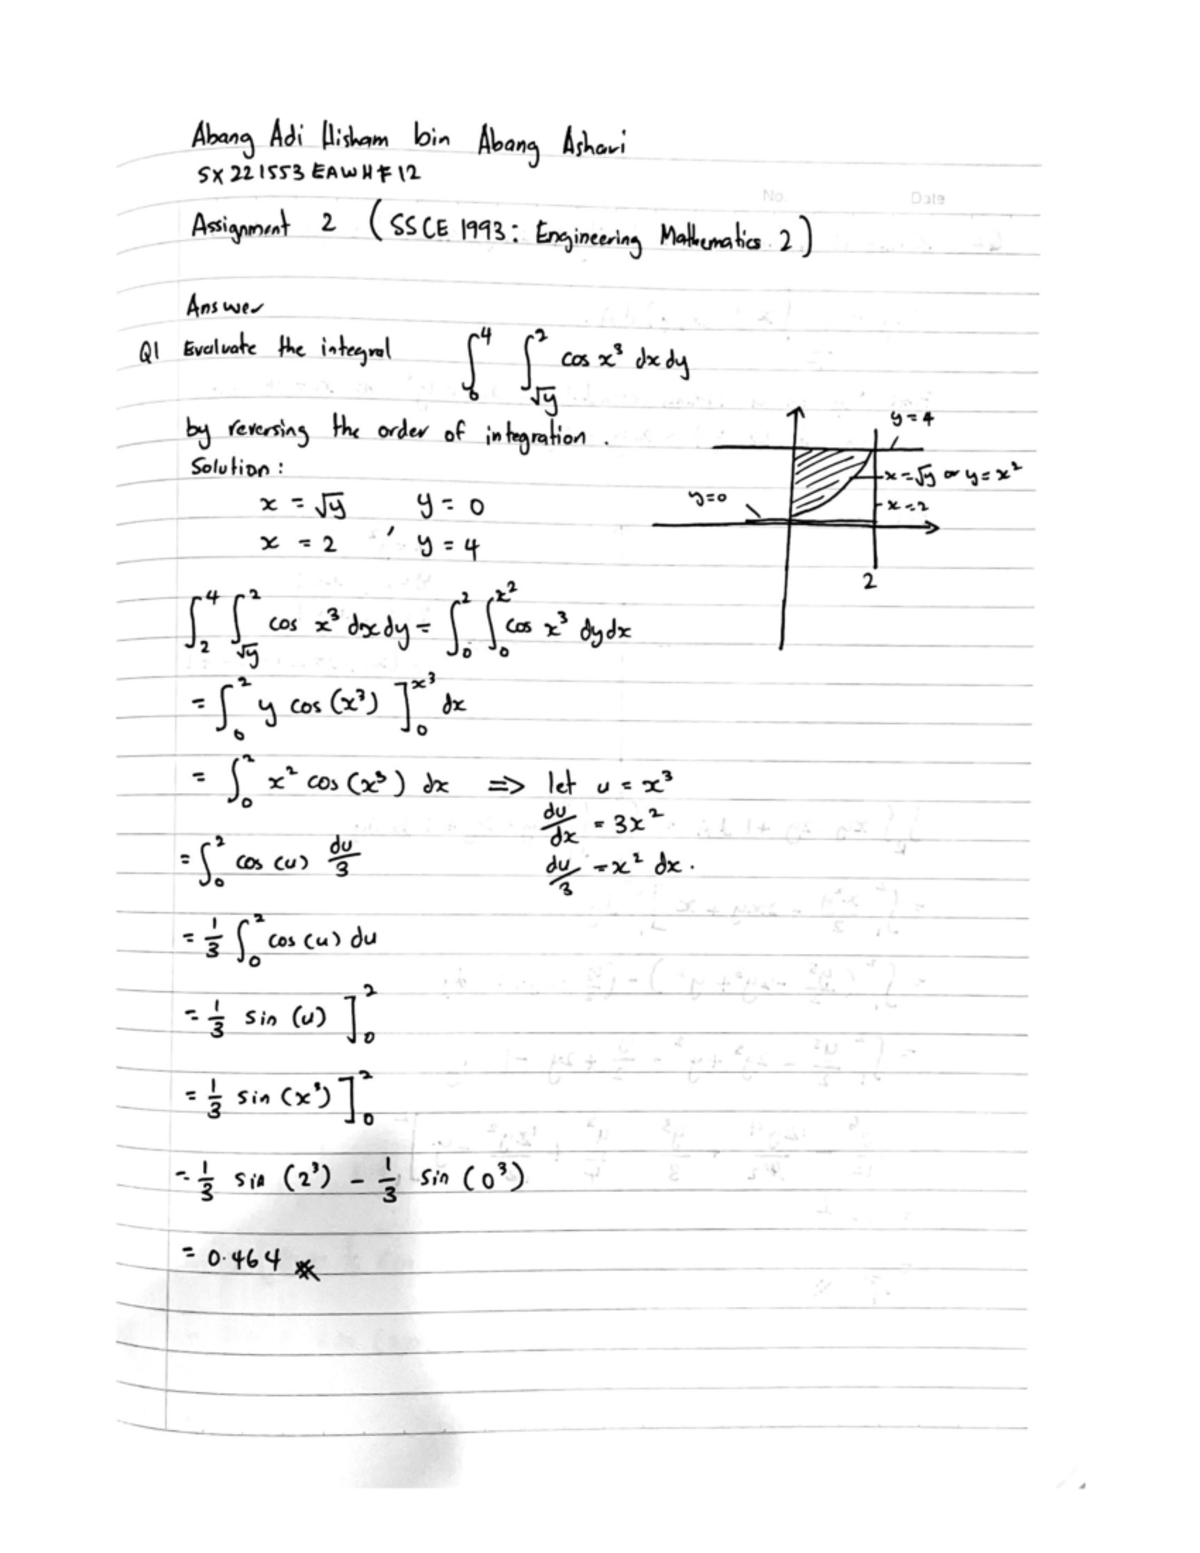 Abang Adi Hisham bin Abang Ashari
SX221553EAWHF12
No.
Date
Assignment 2 (SSCE 1993: Engineering Mathematics 2)
Answer
Q1 Evaluate the integral ∫₀⁴ ∫_√y² cos x³ dx dy
by reversing the order of integration.
Solution:
x = √y , y = 0
x = 2 y = 4
y = 4
x = √y or y = x²
x = 2
y = 0
2
∫₂⁴ ∫_√y² cos x³ dx dy = ∫₀² ∫₀^x² cos x³ dy dx
= ∫₀² y cos (x³) ]₀^x³ dx
= ∫₀² x² cos (x³) dx => let u = x³
du/dx = 3x²
= ∫₀² cos (u) du/3
du/3 = x² dx.
= 1/3 ∫₀² cos (u) du
= 1/3 sin (u) ]₀²
= 1/3 sin (x³) ]₀²
= 1/3 sin (2³) - 1/3 sin (0³)
= 0.464